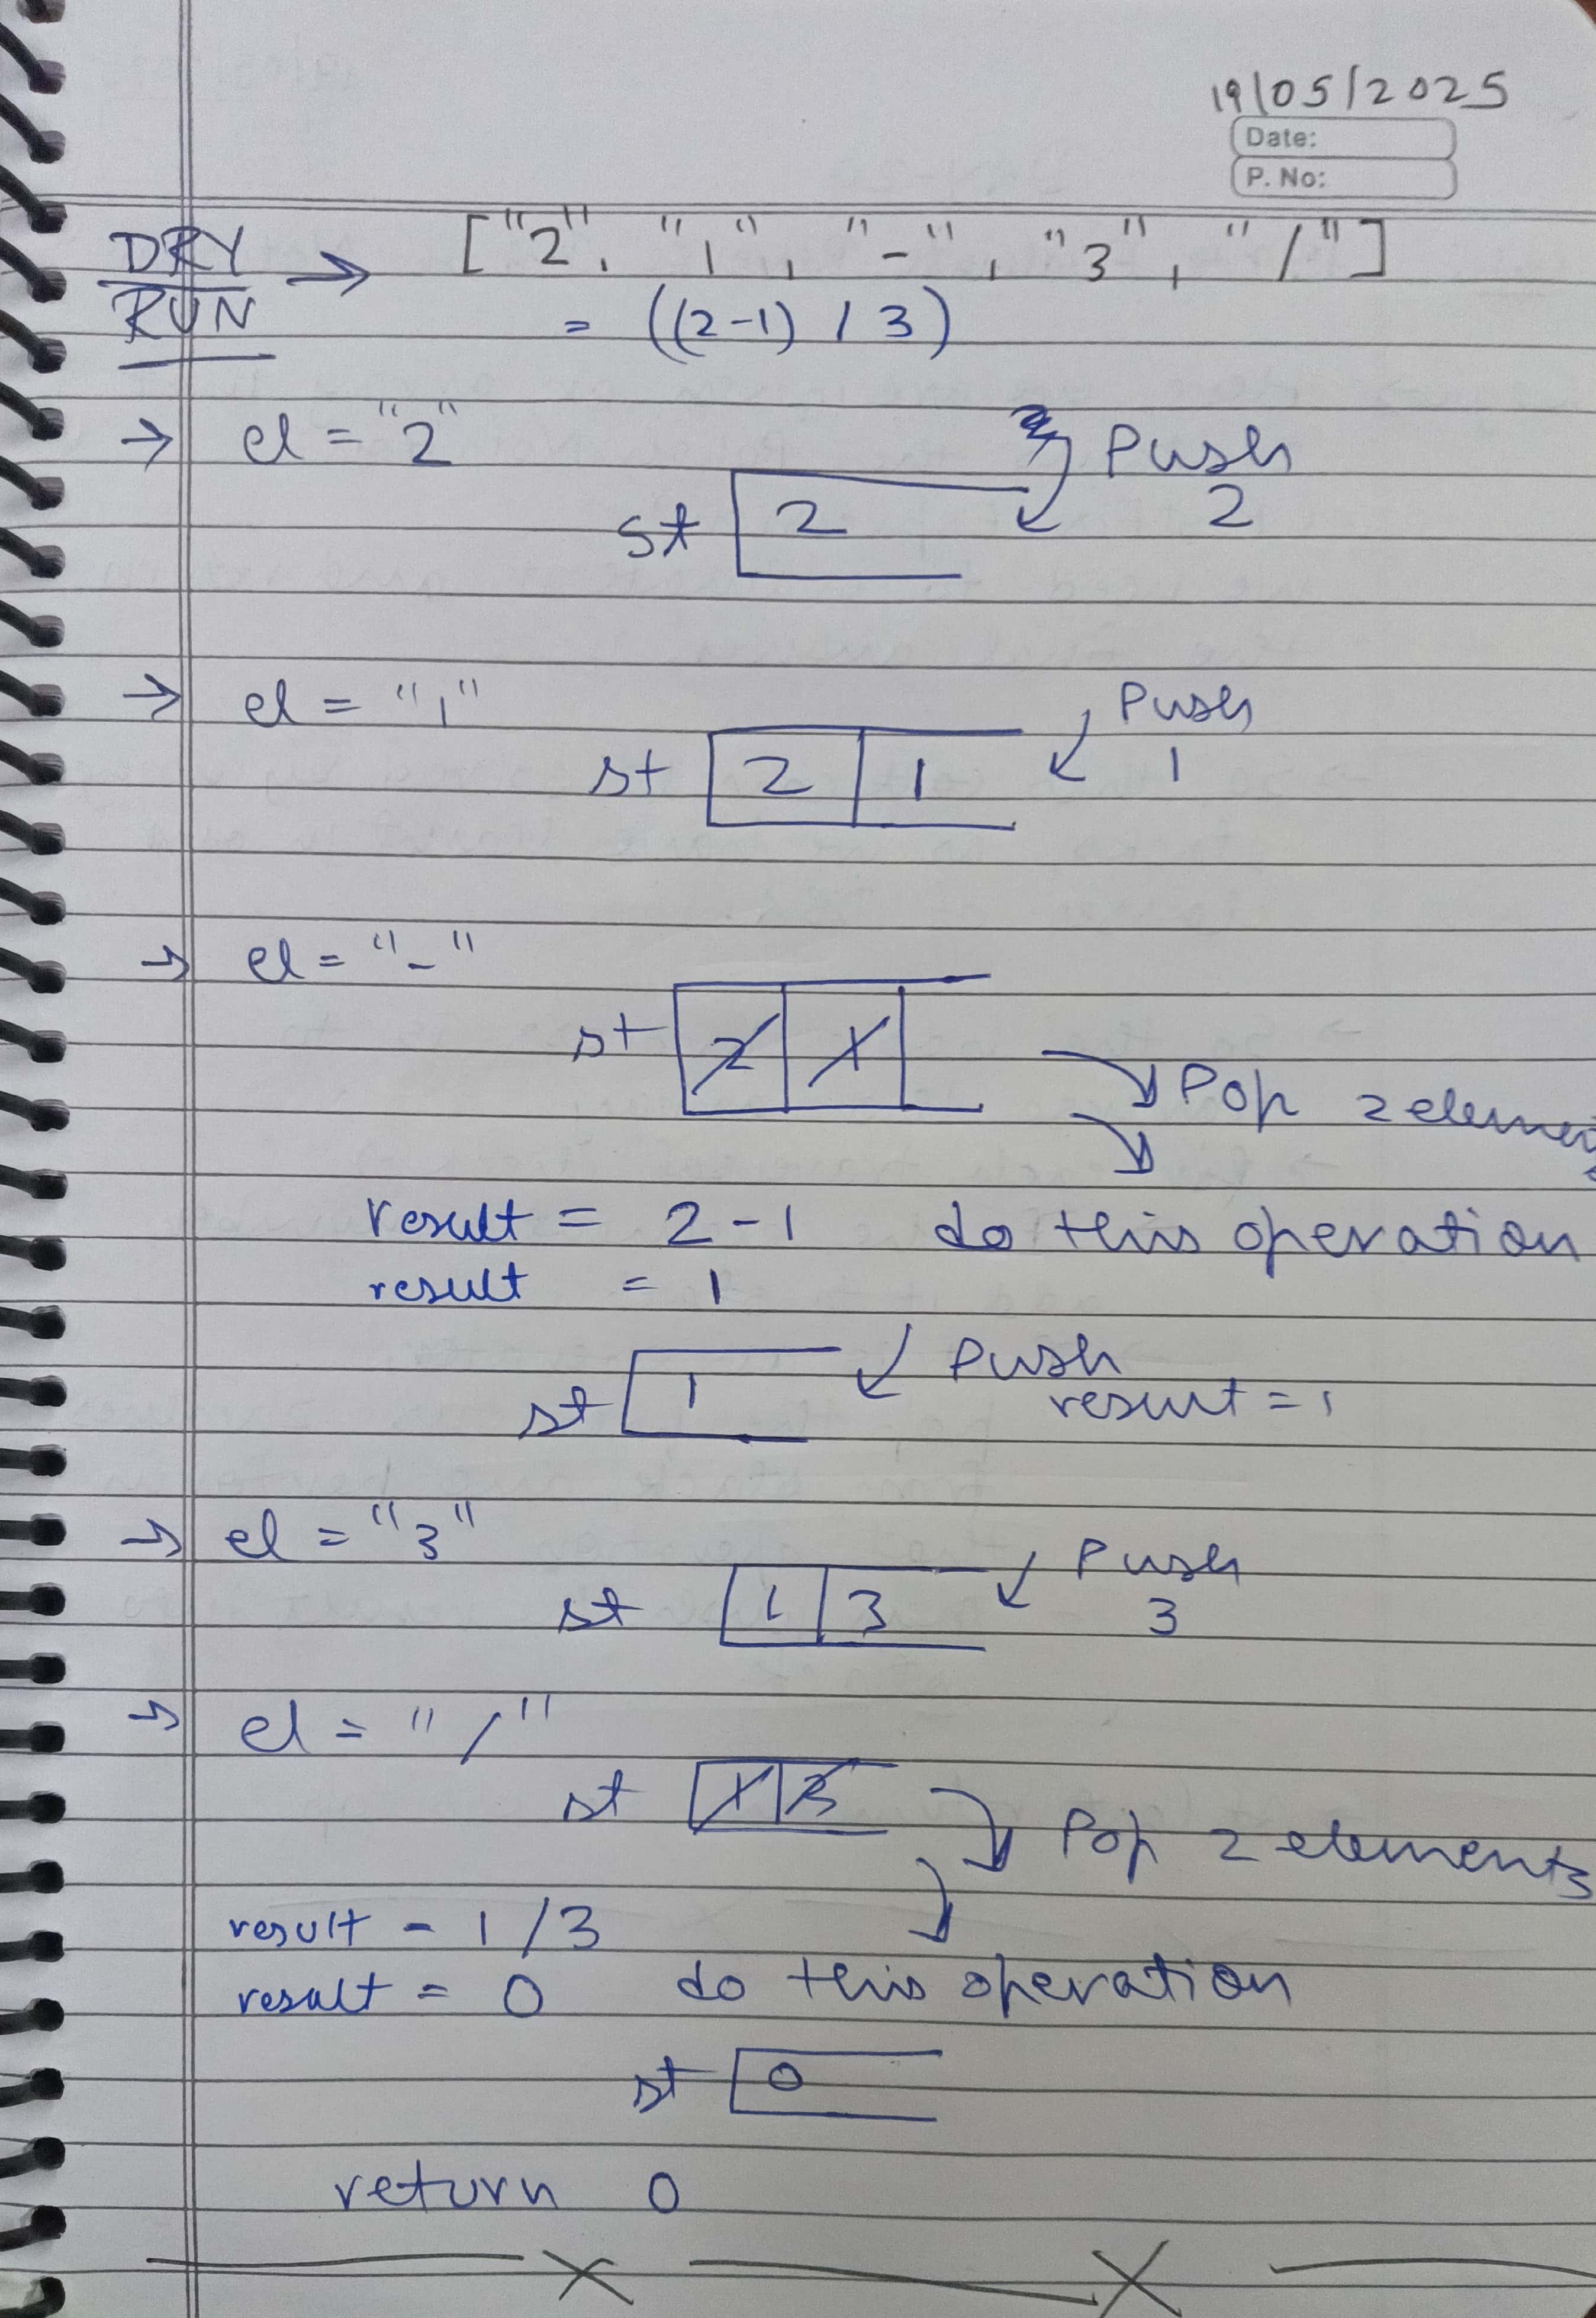 19/05/2025
Date:
P. No:
DRY RUN → ["2", "1", "-", "3", "/"]
= ((2-1) / 3)
→ el = "2"
Push
st 2
2
→ el = "1"
Push
st 2 1
1
→ el = "-"
st 2 1
Pop 2 element
result = 2 - 1 do this operation
result = 1
Push
st 1
result = 1
→ el = "3"
Push
st 1 3
3
→ el = "/"
st 1 3
Pop 2 elements
result = 1 / 3
result = 0 do this operation
st 0
return 0